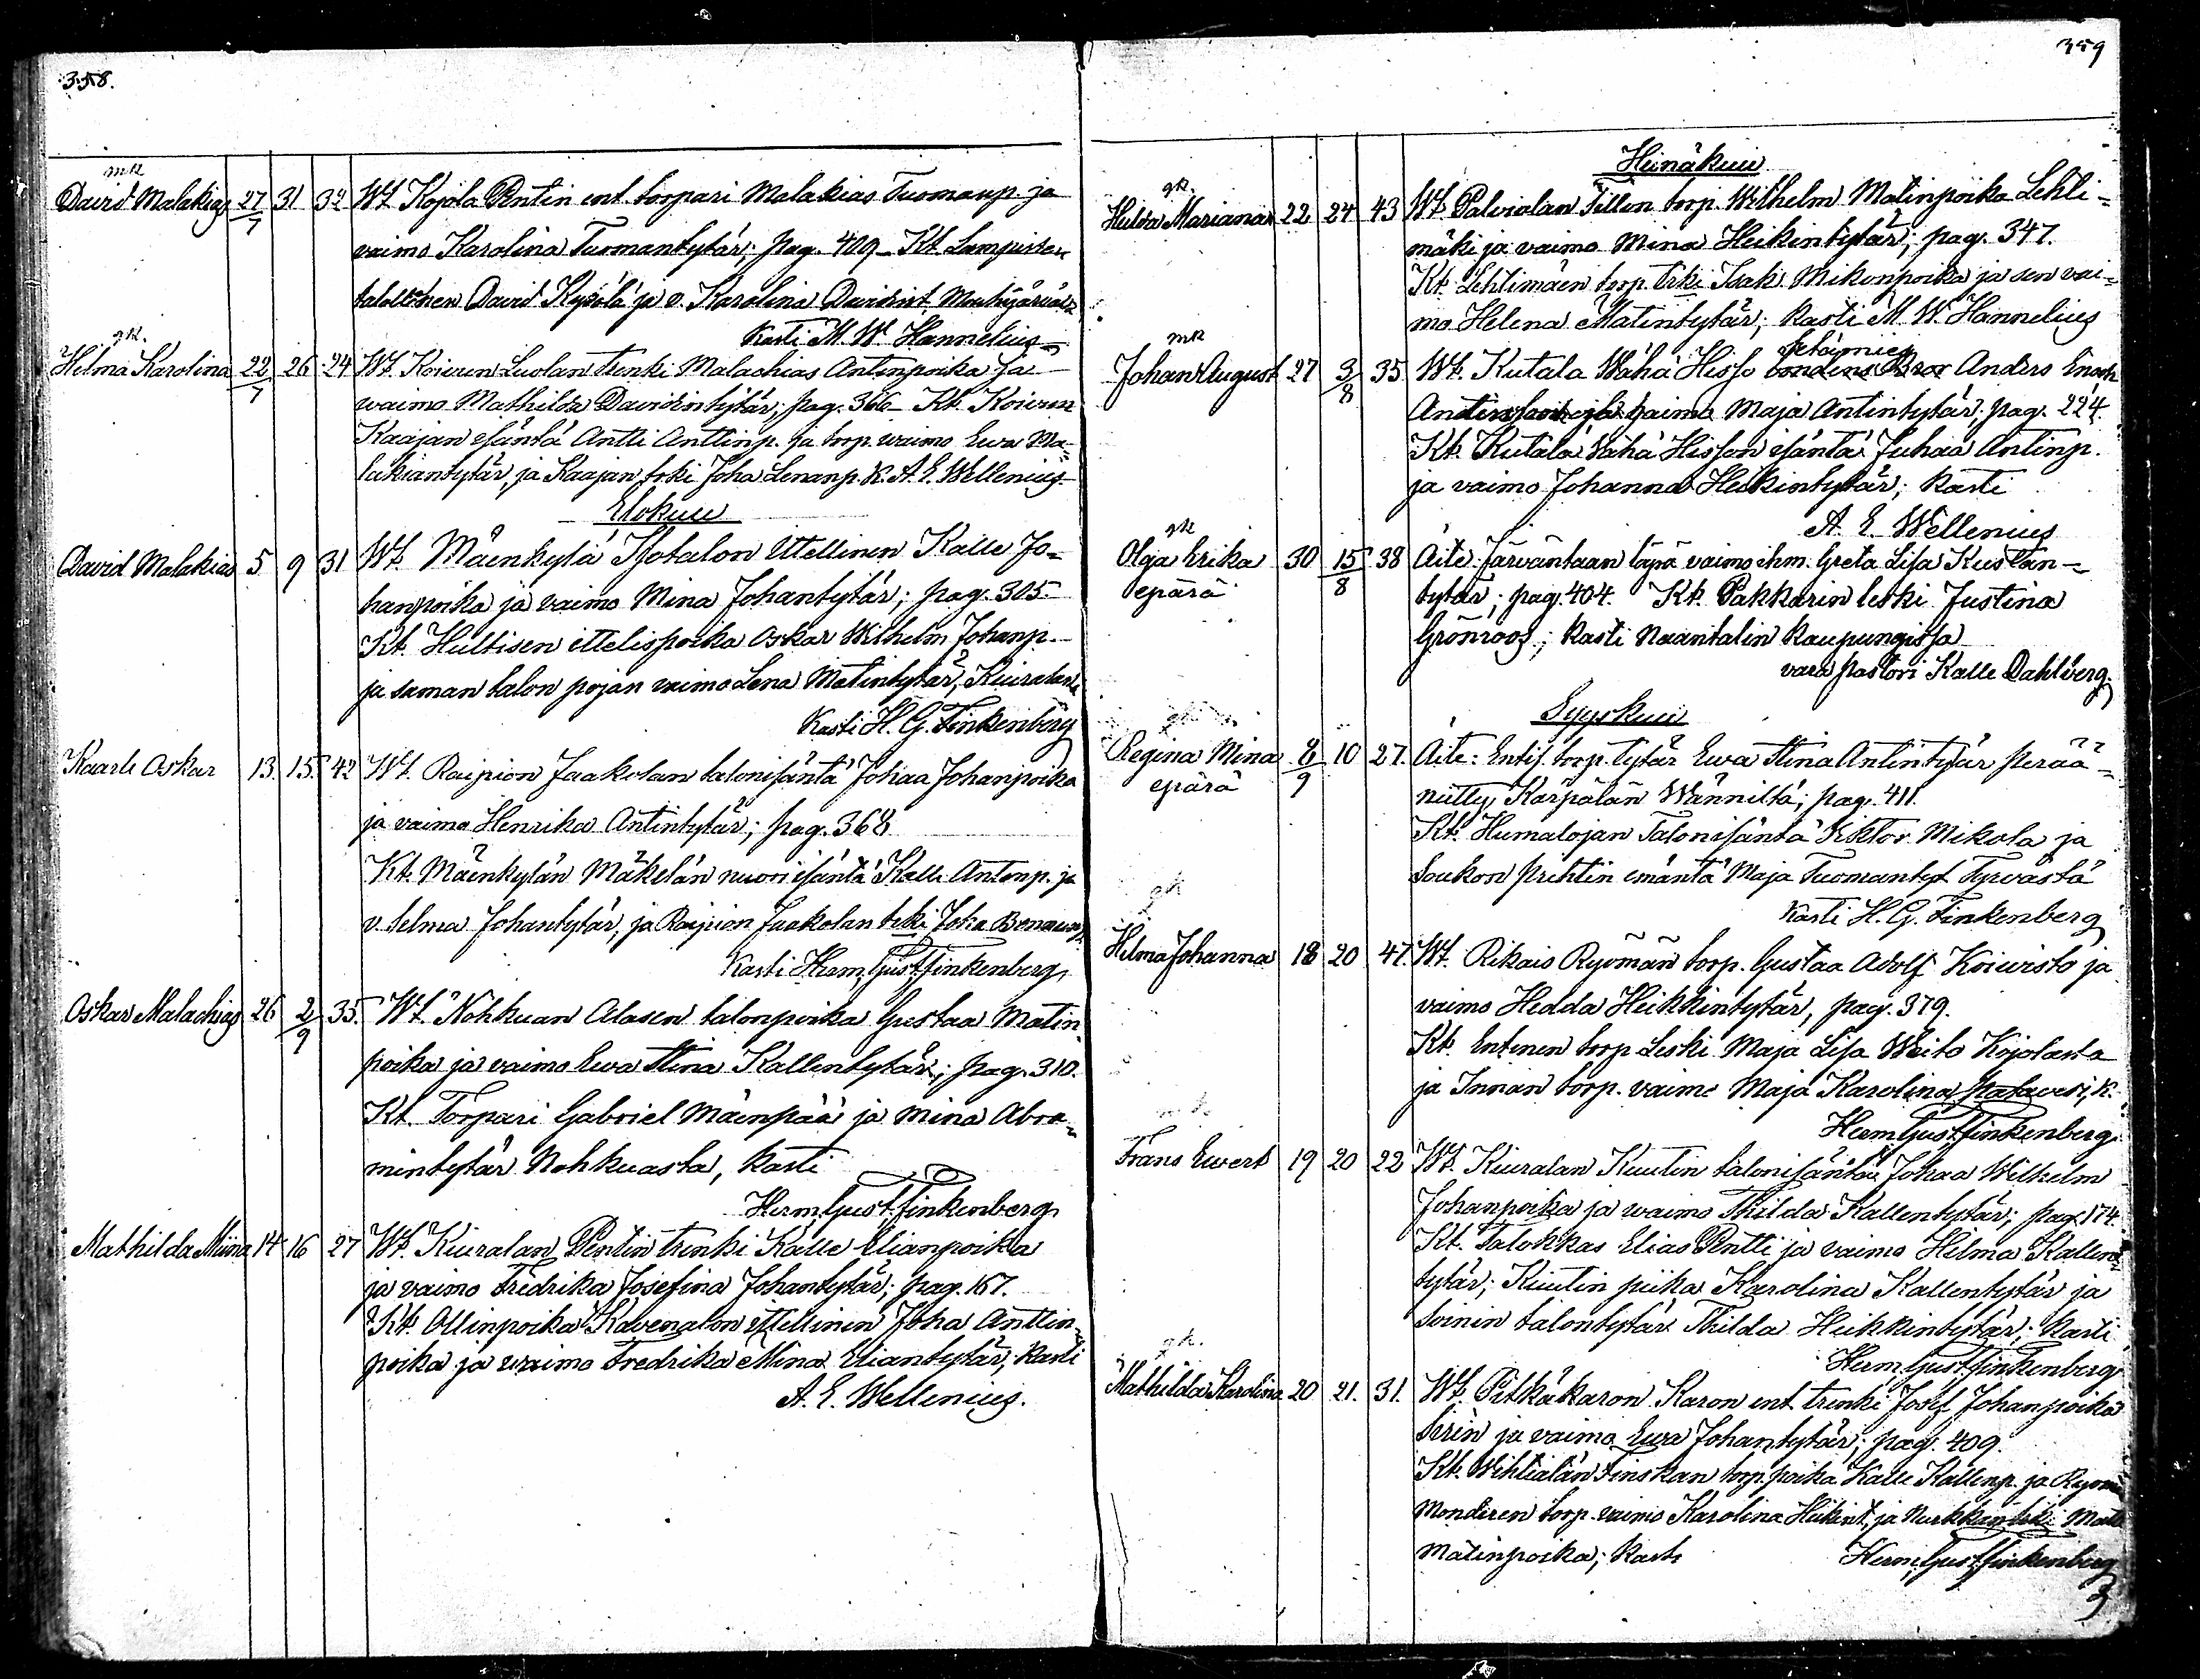 358.
mk
David Malakias 27/7 31 32 Wt. Kojola Pentin ent. torpari Malakias Tuomanp. ja
vaimo Karolina Tuomantytär; pag. 409 - Kt. Lampisten
talollinen David Kylölä ja v. Karolina Davidint. Mouhijärvältä
Kasti M. W. Hannelius
gk.
Helma Karolina 22/7 26 24 Wt. Koivun Luolan trenki Malachias Antinpoika ja
waimo Mathilda Davidintytär; pag. 366 - Kt. Koivun
Kaajan isäntä Antti Anttinp. ja torp. waimo Ewa Ma-
lakiantytär, ja Kaajan trki Joha Lenanp. K. A. E. Wellenius
Elokuu
David Malakias 5 9 31 Wt. Mäenkylä Isotalon Ittellinen Kalle Jo-
hanpoika ja vaimo Mina Johantytär; pag. 305
Kt. Hultisen ittelispoika Oskar Wilhelm Johanp.
ja saman talon pojan vaimo Lena Matintytär, Kiuralasta
Kasti H. G. Finkenberg
Kaarle Oskar 13. 15. 42 Wt. Raipion Jaakolan talonisäntä Johaa Johanpoika
ja vaimo Henrika Antintytär; pag. 368
Kt. Mäenkylän Mäkelän nuori isäntä Kalle Antonp. ja
v. Selma Johantytär, ja Raipion Jaakolan trki Joha
Kasti Herm. Gust. Finkenberg
Oskar Malachias 26 2/9 35. Wt. Nohkuan Alasen talonpoika Gustaa Matin
poika ja vaimo Ewa Stina Kallentytär; pag. 310.
Kt. Torpari Gabriel Mäenpää ja Mina Abra-
mintytär Nohkuasta, Kasti
Herm. Gust. Finkenberg
Mathilda Miina 14 16 27 Wt. Kiuralan Pentin trenki Kalle Elianpoika
ja vaimo Fredrika Josefina Johantytär; pag. 167.
Kt. Ollinpoika Kavenalon ittellinen Joha Anttin
poika ja waimo Fredrika Mina Eliantytär; Kasti
A. E. Wellenius.
359
Heinäkuu
gk.
Hulda Mariana 22 24 43 Wt. Palvialan Tillin torp. Wilhelm Matinpoika Lehti-
mäki ja vaimo Mina Heikintytär; pag. 347.
Kt. Lehtimäen torp. trki Isak Mikonpoika ja sen vai-
mo Helena Matintytär; Kasti M. W. Hannelius
mk
Johan August 27 3/8 35. Wt. Kutala Wähä Hisso bondens Bror Anders Enoch
ja vaimo Maja Antintytär; pag. 224.
Kt. Kutala Wähä Hisson isäntä Juhaa Antinp.
ja vaimo Johanna Heikintytär; Kasti
A. E. Wellenius
gk
Olga Erika 30 15/8 38 Äite: Järväntaan läpä vaimo ihm. Greta Lisa Kustan-
epärä
tytär; pag. 404. Kt. Pakkarin leski Justina
Grönroos; Kasti Naantalin Kaupungissa
vara pastori Kalle Dahlberg.
Syyskuu
gk
Regina Mina 8/9 10 27. Äite: Entis. torp. tytär Ewa Stina Antintytär perää-
epärä
nutty, Karpalan Wänniltä; pag. 411.
Kt. Humalojan Talonisäntä Viktor Mikola ja
Soukon Prihtin emäntä Maja Tuomantyt. Tyrvästä
Kasti H. G. Finkenberg
gk
Helma Johanna 18 20 47. Wt. Rikais Ryömän torp. Gustaa Adolf Koivisto ja
vaimo Hedda Heikkintytär, pag. 379.
Kt. Entinen torp. Leski Maja Lisa Weito Kojolasta
ja Innan torp. vaimo Maja Karolina K.
Herm Gust Finkenberg.
mk
Frans Ewert 19 20 22 Wt. Kiuralan Kuutin talonisäntä Johaa Wilhelm
Johanpoika ja waimo Thilda Kallentytär; pag. 174.
Kt. Talokkas Elias Pentti ja vaimo Helma Kallen-
tytär; Kuutin piika Karolina Kallentytär ja
Soinin talontytär Thilda Heikkintytär; Kasti
Herm Gust Finkenberg
gk.
Mathilda Karolina 20 21. 31. Wt. Pitkäkaron Karon ent. trenki Josef Johanpoika
Sirin ja vaimo Ewa Johantytär; pag. 409.
Kt. Wihtialan Finskan torp. poika Kalle Kallenp. ja
Monderen torp. vaimo Karolina Heikint. ja trki Matti
Matinpoika; Kasti Herm. Gust. Finkenberg